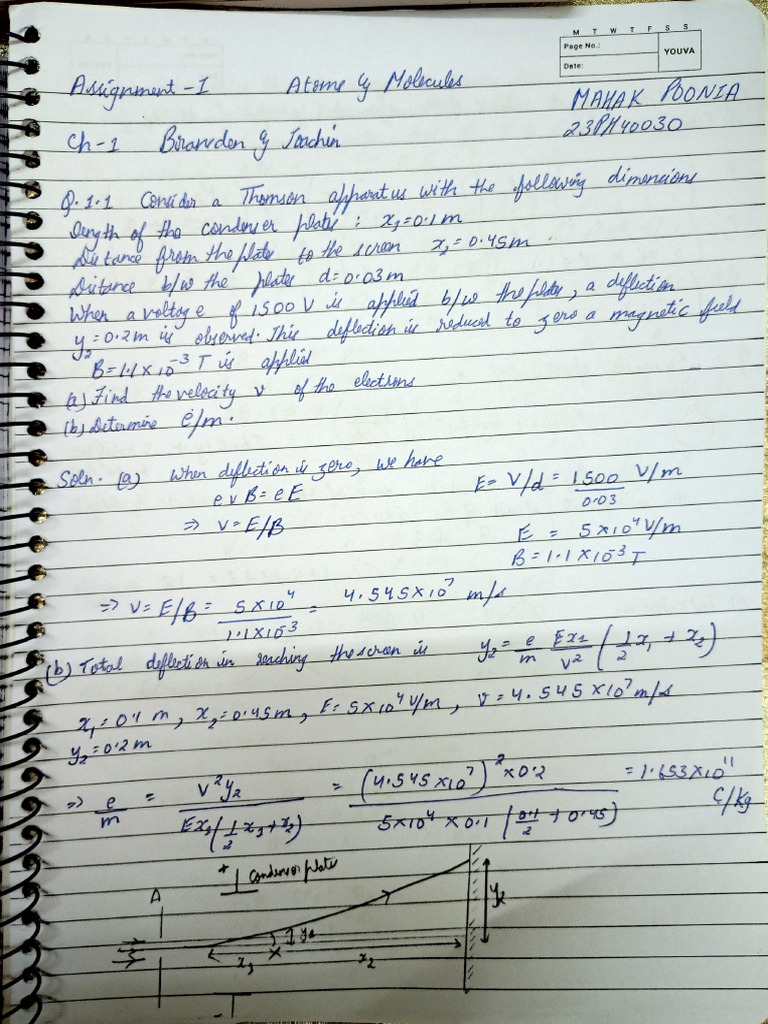 M T W T F S S
Page No.:
YOUVA
Date:
Assignment-I Atoms & Molecules
MAHAK POONIA
23PH40030
Ch-1 Bransden & Joachin
Q.1.1 Consider a Thomson apparatus with the following dimensions
length of the condenser plates : x₁=0.1m
Distance from the plates to the screen x₂=0.45m.
Distance b/w the plates d=0.03m
When a voltage of 1500 V is applied b/w the plates, a deflection
y₂=0.2m is observed. This deflection is reduced to zero a magnetic field
B=1.1×10⁻³ T is applied
(a) Find the velocity v of the electrons
(b) Determine e/m.
Soln. (a) When deflection is zero, we have
e v B = e E
⇒ v = E/B
E = V/d = 1500/0.03 V/m
E = 5×10⁴ V/m
B = 1.1×10⁻³ T
⇒ v = E/B = 5×10⁴/1.1×10⁻³ = 4.545×10⁷ m/s
(b) Total deflection in reaching the screen is y₂ = e/m Ex₁/v² (1/2 x₁ + x₂)
x₁=0.1 m, x₂=0.45m, E=5×10⁴ V/m, v=4.545×10⁷ m/s
y₂=0.2m
⇒ e/m = v²y₂/Ex₁(1/2 x₁+x₂) = (4.545×10⁷)²×0.2/5×10⁴×0.1(0.1/2+0.45) = 1.653×10¹¹
C/Kg
+ Condensor plate
A
y₂
x₁ x₂
-